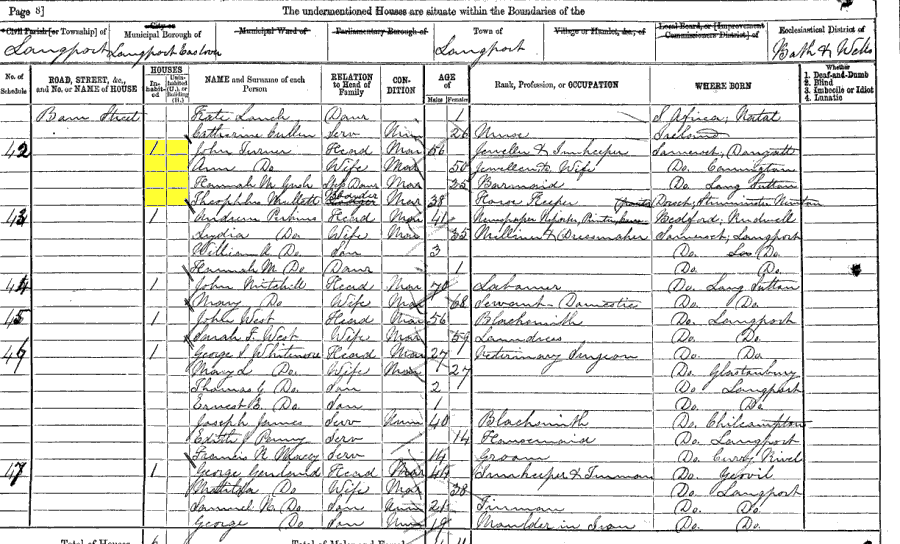 Page 8] The undermentioned Houses are situate within the Boundaries of the
Civil Parish [or Township] of City or Municipal Borough of Municipal Ward of Parliamentary Borough of Town of Village or Hamlet, &c., of Local Board, or [Improvement Commissioners District] of Ecclesiastical District of
Langport Langport Eastover Langport Bath & Wells
No. of Schedule ROAD, STREET, &c., and No. or NAME of HOUSE HOUSES Inhabited Uninhabited (U.), or Building (B.) NAME and Surname of each Person RELATION to Head of Family CONDITION AGE of Males Females Rank, Profession, or OCCUPATION WHERE BORN Whether 1. Deaf-and-Dumb 2. Blind 3. Imbecile or Idiot 4. Lunatic
Daur 1 S Africa; Natal
Catharine Cullen Serv Unm 26 Nurse Ireland
42 1 John Turner Head Mar 56 Jeweller & Innkeeper Somerset;
Ann Do Wife Mar 50 Jeweller's Wife Do. Cannington
Hannah M. Mar 25 Barmaid Do. Long Sutton
Theophilus Boarder Mar 38 Horse Keeper Dorset; Sturminster Newton
43 1 Andrew Perkins Head Mar 41 Newspaper Reporter, Bedford;
Lydia Do. Wife Mar 35 Milliner & Dressmaker Somerset; Langport
William A. Do. Son 3 Do. Do.
Hannah M. Do. Daur 1 Do. Do.
44 1 John Mitchell Head Mar 70 Labourer Do. Long Sutton
Mary Do Wife Mar 68 Servant - Domestic Do. Do.
45 1 John West Head Mar 56 Blacksmith Do. Langport
Sarah F. West Wife Mar 59 Laundress Do. Do.
46 1 George S Whitemore Head Mar 27 Veterinary Surgeon Do. Do.
Mary L. Do. Wife Mar 27 Do. Glastonbury
Thomas G. Do. Son 2 Do. Langport
Ernest B. Do. Son 1 Do. Do.
Joseph James Serv Unm 40 Blacksmith Do. Chilcompton
Edith J Penny Serv 14 Housemaid Do. Langport
Francis H. Macey Serv 14 Groom Do. Curry Rivel
47 1 George Head Mar 44 Innkeeper & Tinman Do. Yeovil
Matilda Do Wife Mar 38 Do. Langport
Samuel H. Do Son Unm 21 Tinman Do. Do.
George Do Son Unm 19 Moulder in Iron Do. Do.
Total of Houses 6 Total of Males and Females